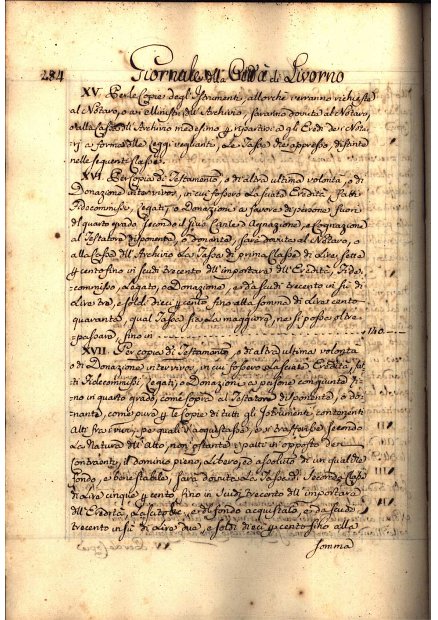 284 Giornale dell. Città di Livorno
XV. Per le Copie degl'Istrumenti, allorchè verranno richieste
al Notaro, o ai Ministri dell'Archivio, saranno dovute al Notaro,
o alla Cassa di Archivio medesimo, e
a forma delle Leggi veglianti, le Tasse di appresso, distinte
nelle seguenti Classi.
XVI. Per Copia di Testamento, o di altra ultima volontà, o di
Donazione intervivos, in cui fossero lasciate Eredità, fatti
Fidecommissi, Legati, o Donazioni a favore di persone fuori
del quarto grado secondo il Gius Canonico di Agnazione, e Cognazione
al Testatore disponente, o donante, sarà dovuta al Notaro, o
alla Cassa dell'Archivio la Tassa di prima Classe di Lire sette
p cento fino in scudi trecento dell'importare dell'Eredità, Fide-
commisso, Legato, o Donazione, e da scudi trecento in sù di
Lire tre, e soldi dieci p cento fino alla somma di Lire cento
quaranta, qual Tassa sia la maggiore, ne si possa oltre-
passare, fino in 140.
XVII. Per copia di Testamento, o di altra ultima volontà
o di Donazione intervivos, in cui fossero lasciate Eredità, fat-
ti Fidecommissi, Legati, o Donazioni a persone congiunte fi-
no in quarto grado, come sopra al Testatore disponente, o do-
nante, come pure p le copie di tutti gl'Istrumenti contenenti
Atti fra i vivi, pe' quali s'acquistasse, o si trasferisse secondo
la Natura dell'Atto, non ostante i patti in opposto dei
Contraenti, il dominio pieno, e libero, ed assoluto di un qualche
fondo, e bene stabile, sarà dovuta la Tassa di Seconda Classe
di Lire cinque p cento fino in Scudi trecento dell'importare
dell'Eredità, e di fondo acquistato, e da scudi
trecento in sù di Lire due, e soldi dieci p cento fino alla
somma